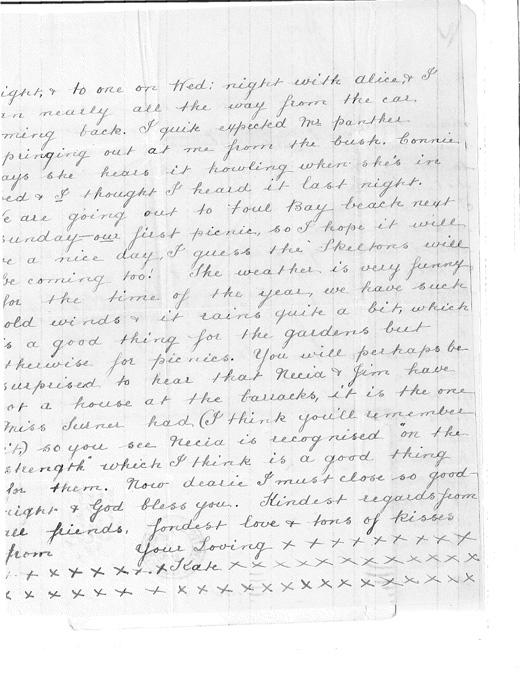 ight, & to one on Wed: night with alice, & I
an nearly all the way from the car
ming back. I quite expected Mr panther
pringing out at me from the bush. Connie
ays she hears it howling when she's in
ed & I thought I heard it last night.
e are going out to Foul Bay beach next
unday - our first picnic, so I hope it will
e a nice day, I guess the Skeltons will
be coming too! The weather is very funny
for the time of the year, we have such
old winds & it rains quite a bit, which
is a good thing for the gardens but
therwise for picnics. You will perhaps be
surprised to hear that Necia & Jim have
ot a house at the barracks, it is the one
Miss Turner had, (I think you'll remember
it,) so you see Necia is recognised "on the
strength" which I think is a good thing
for them. Now dearie I must close so good
night & God bless you. Kindest regards from
all friends, fondest love & tons of kisses
from Your Loving x x x x x x x x x
x x x x x x x Kate x x x x x x x x x x x x
x x x x x x x x x x x x x x x x x x x x